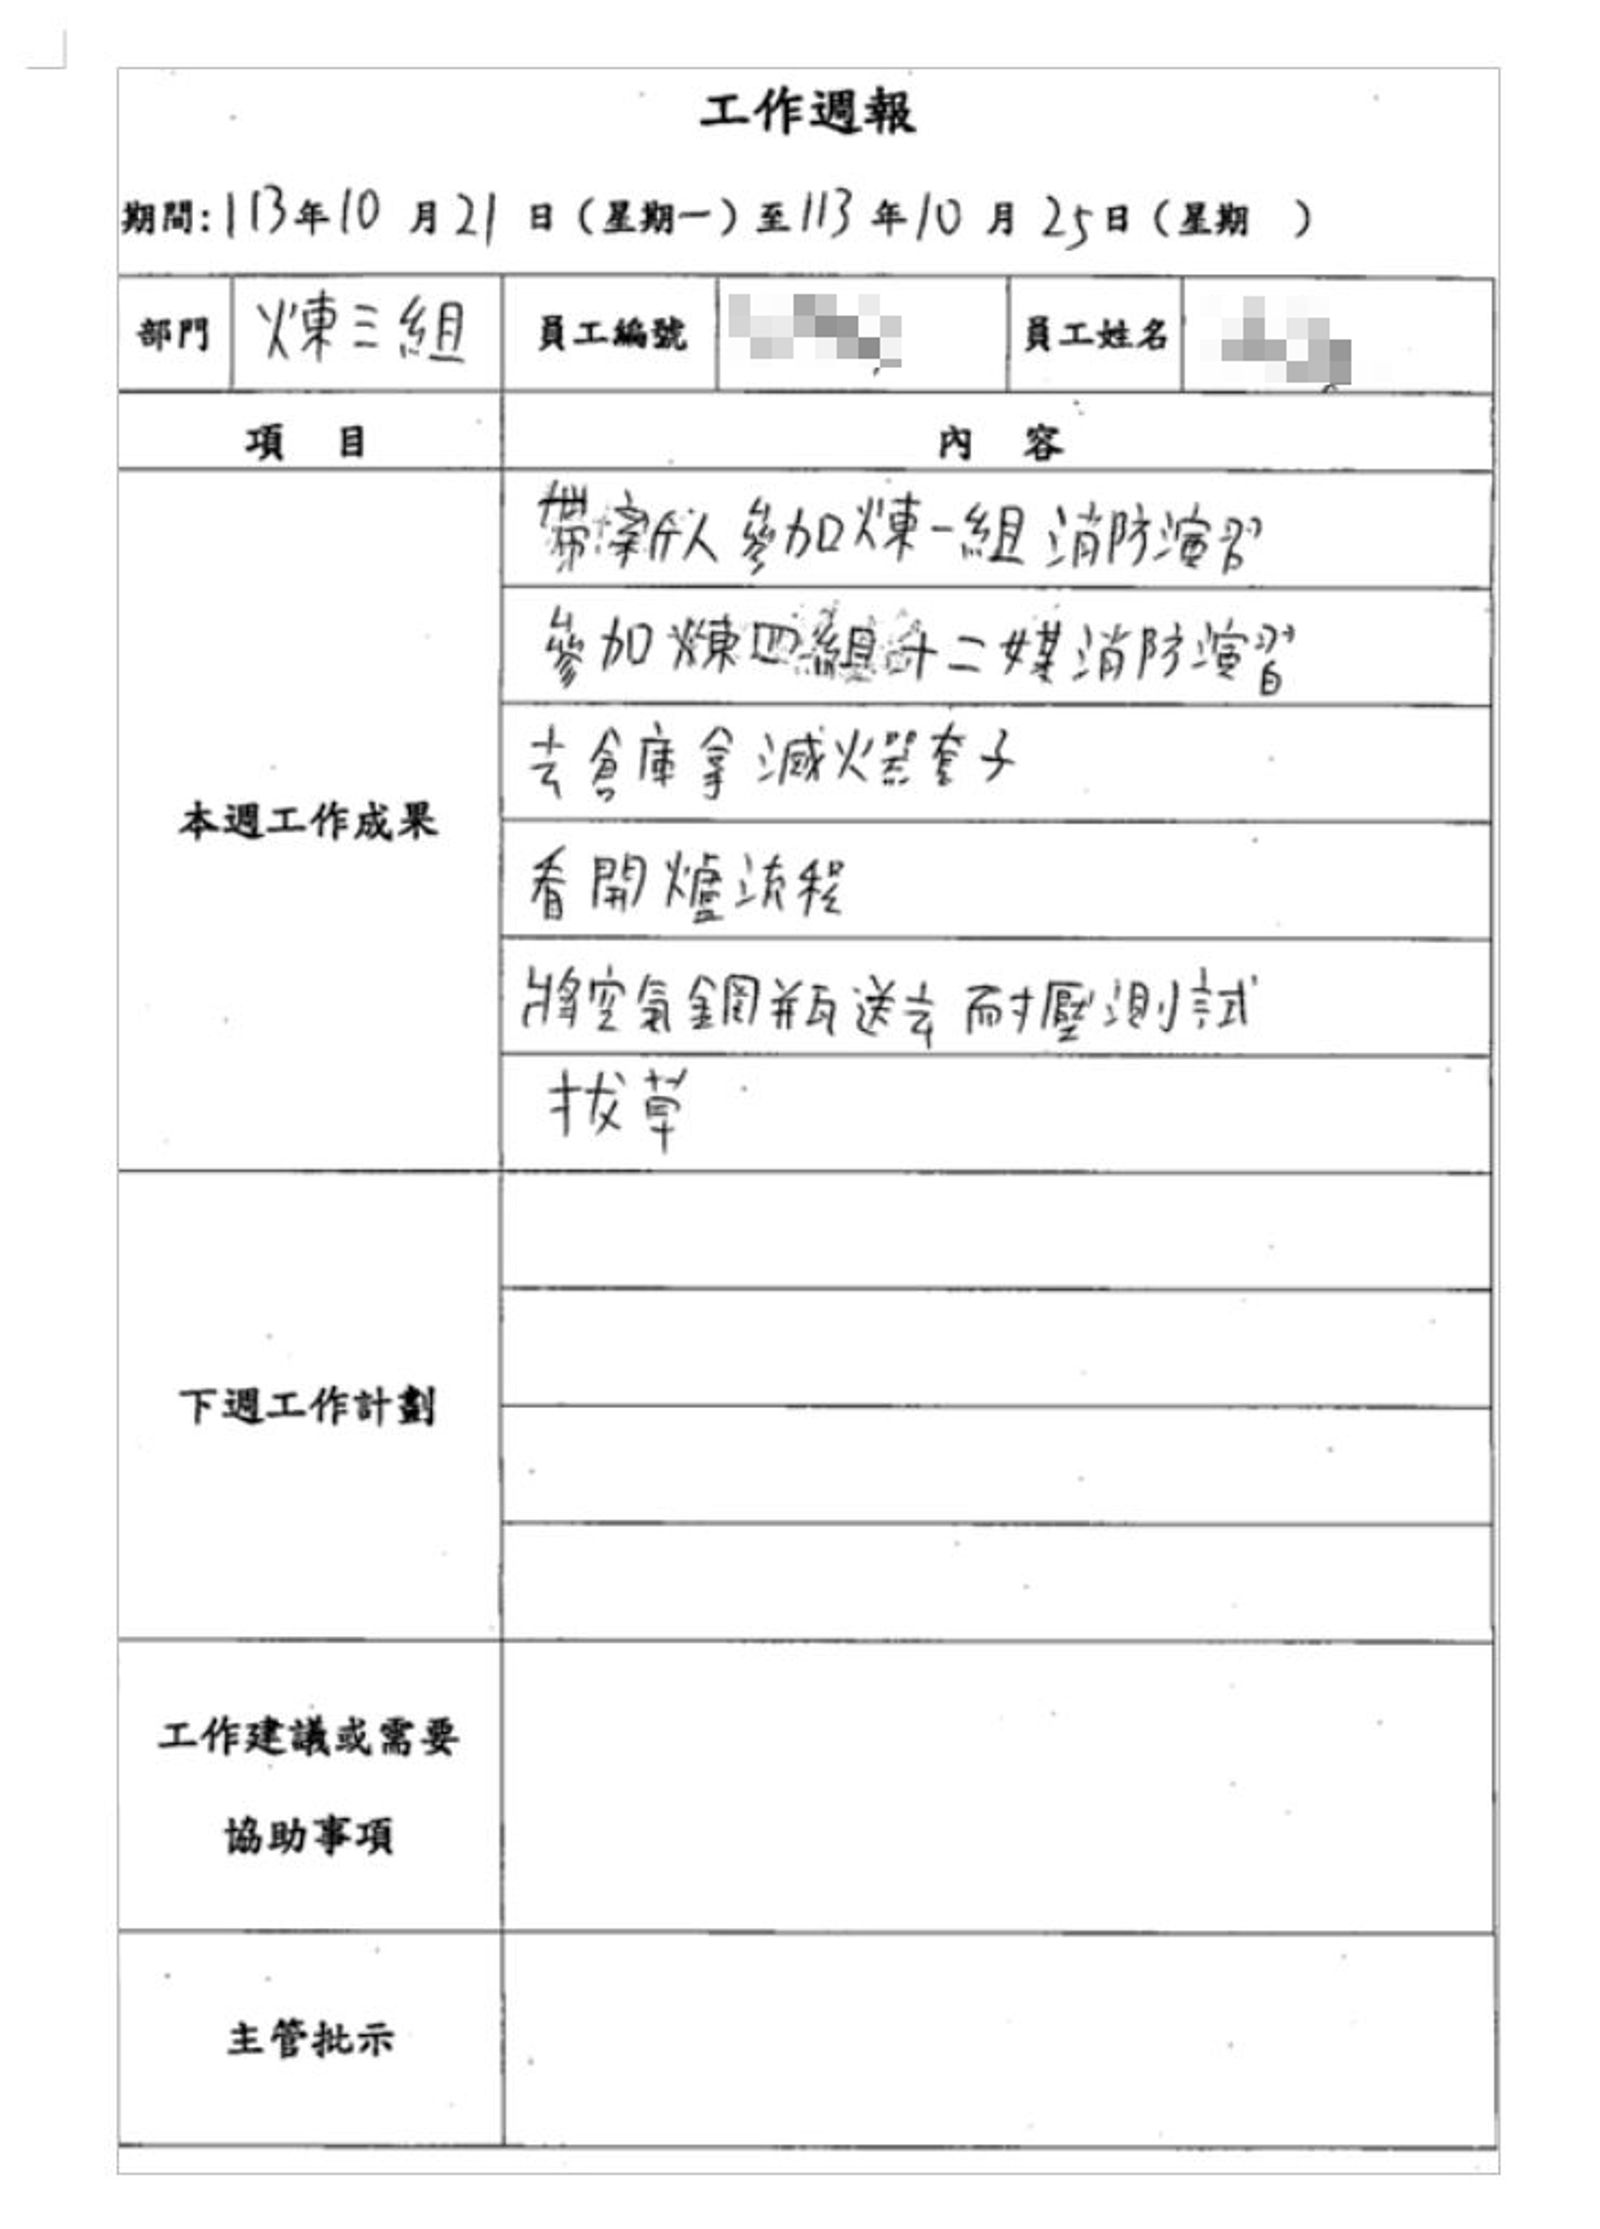 工作週報
期間:113年10月21日(星期一)至113年10月25日(星期 )
部門 煉三組 員工編號 員工姓名
項 目 內 容
本週工作成果
帶新人參加煉一組消防演習
參加煉四組十二媒消防演習
去倉庫拿滅火器套子
看開爐流程
將空氣鋼瓶送去耐壓測試
拔草
下週工作計劃
工作建議或需要
協助事項
主管批示